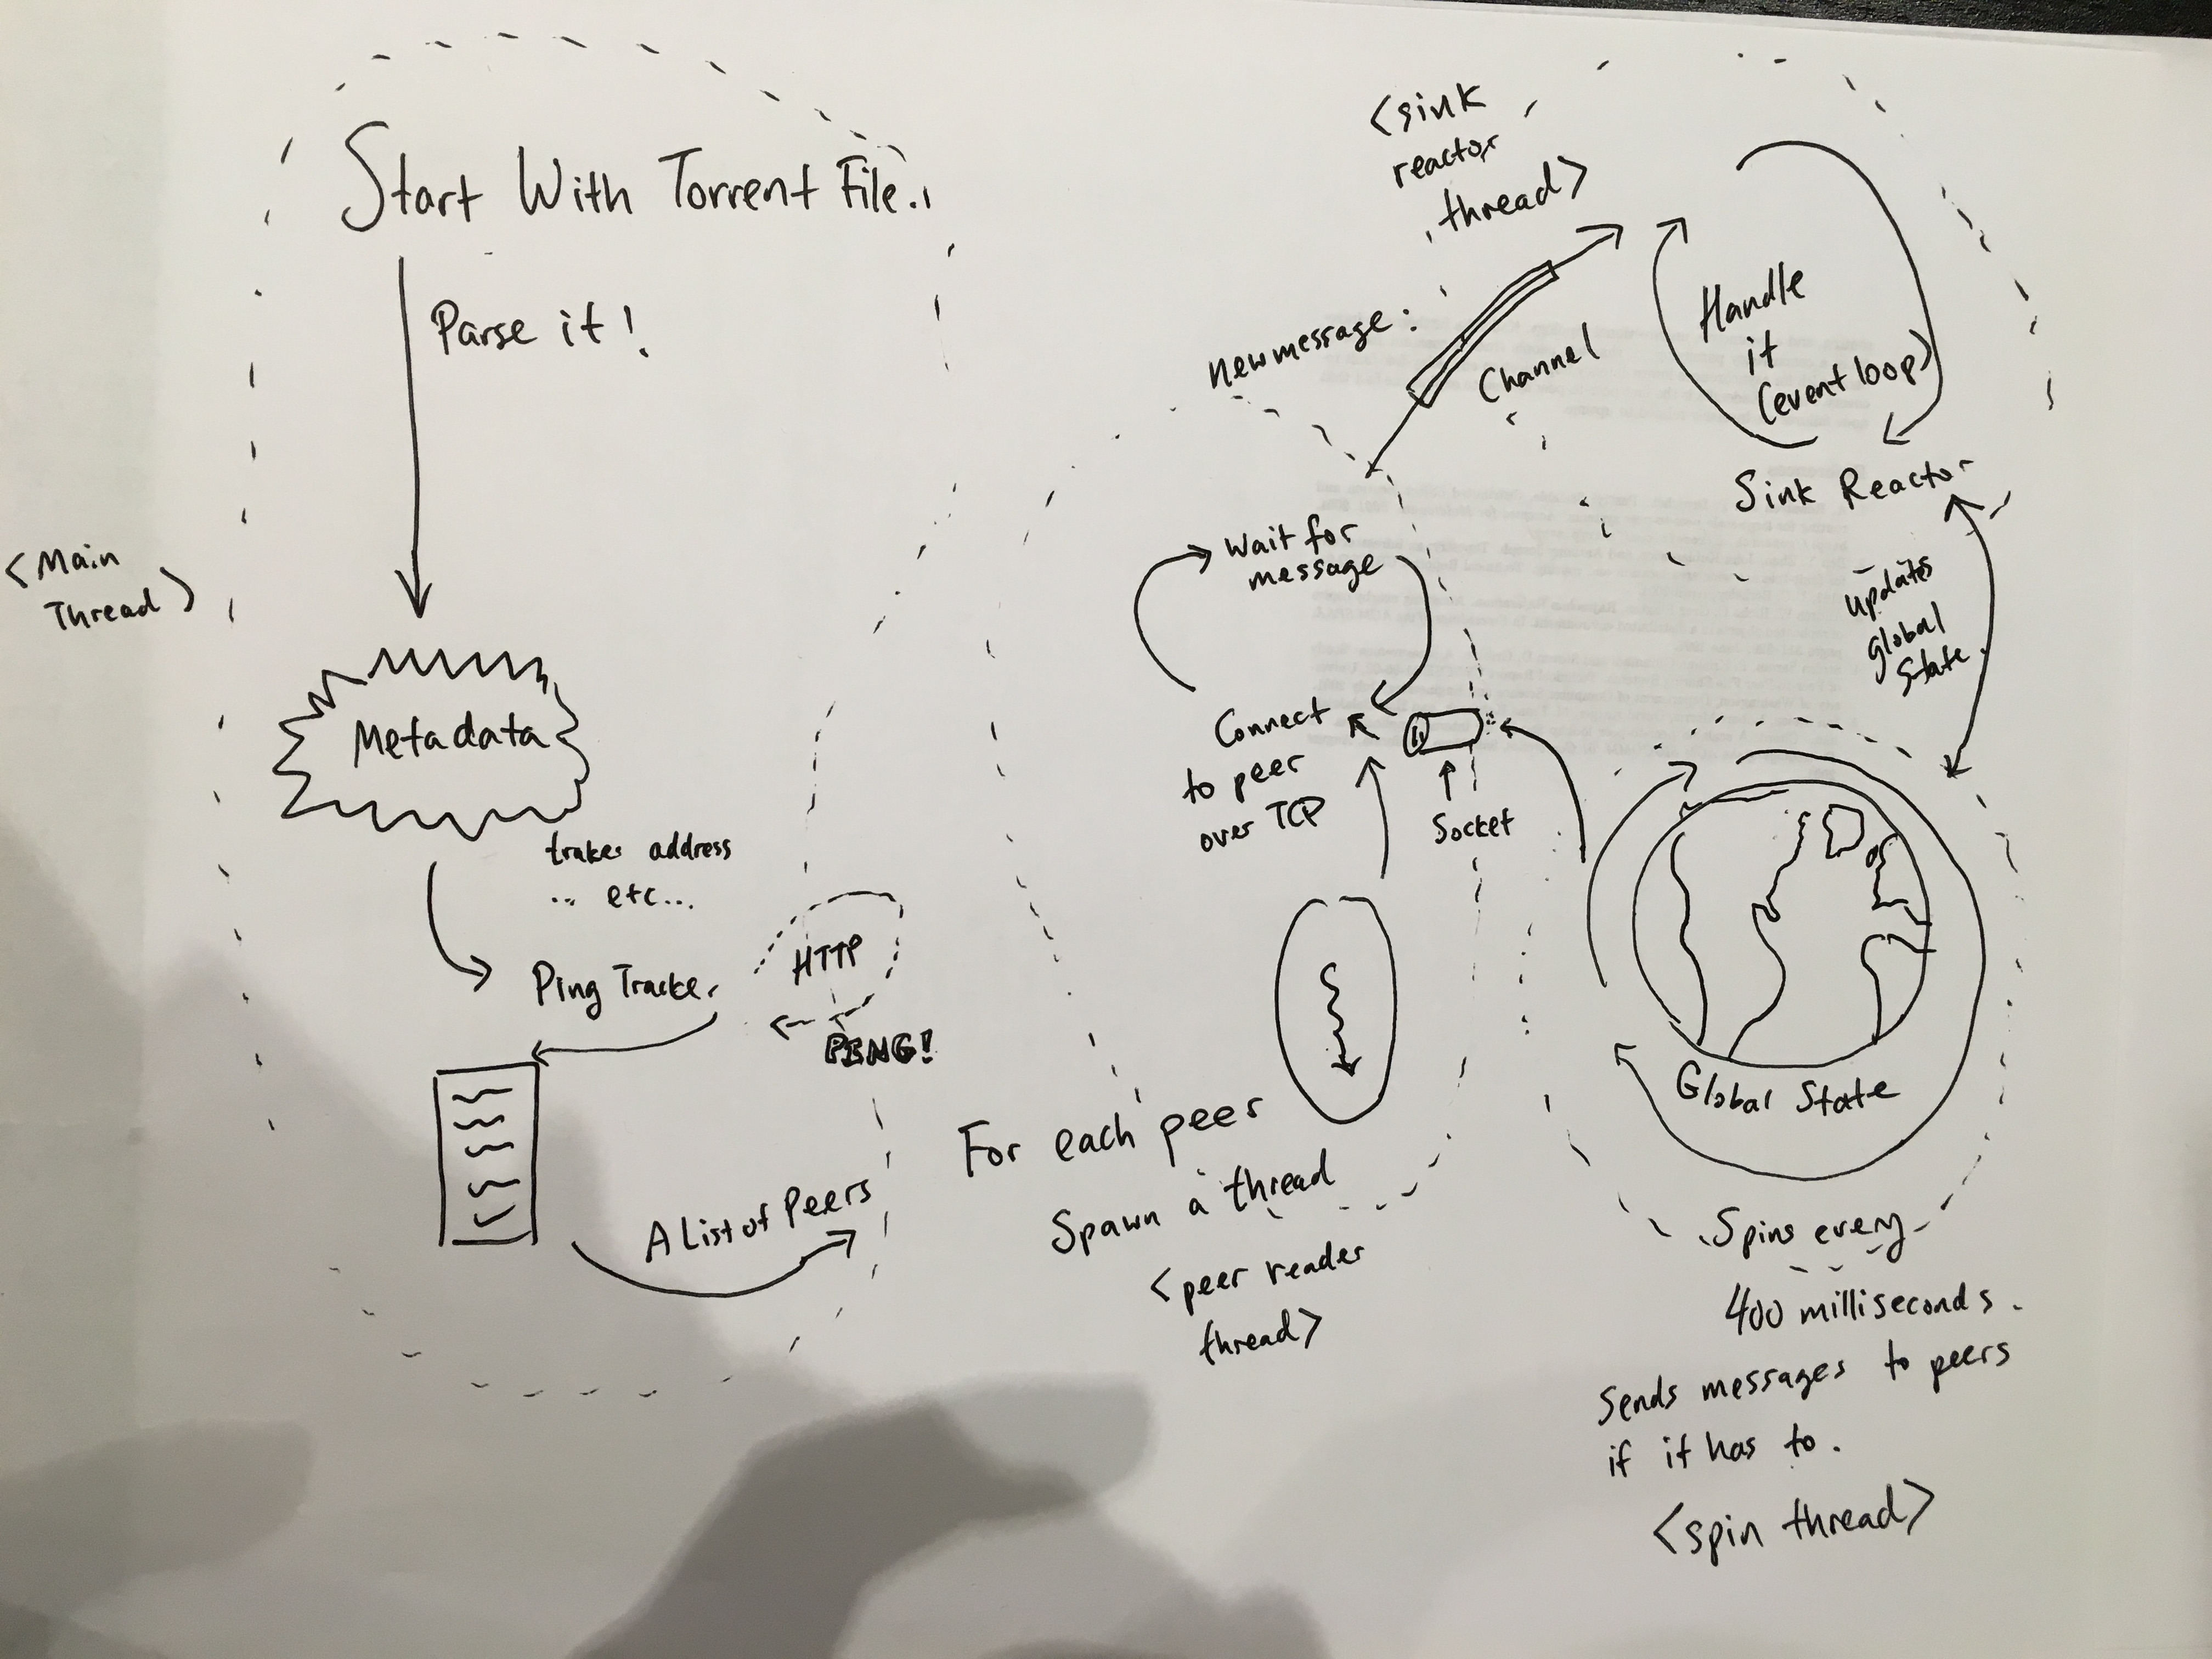 Start With Torrent File..
Parse it!
<Main
Thread>
Metadata
traker address
.. etc...
Ping Tracker
HTTP
PING!
A List of Peers
For each peer
Spawn a thread
<peer reader
thread>
Connect
to peer
over TCP
Wait for
message
Socket
new message:
Channel
<sink
reactor
thread>
Handle
it
(event loop)
Sink Reactor
updates
global
state.
Global State
Spins every
400 milliseconds.
Sends messages to peers
if it has to.
<spin thread>